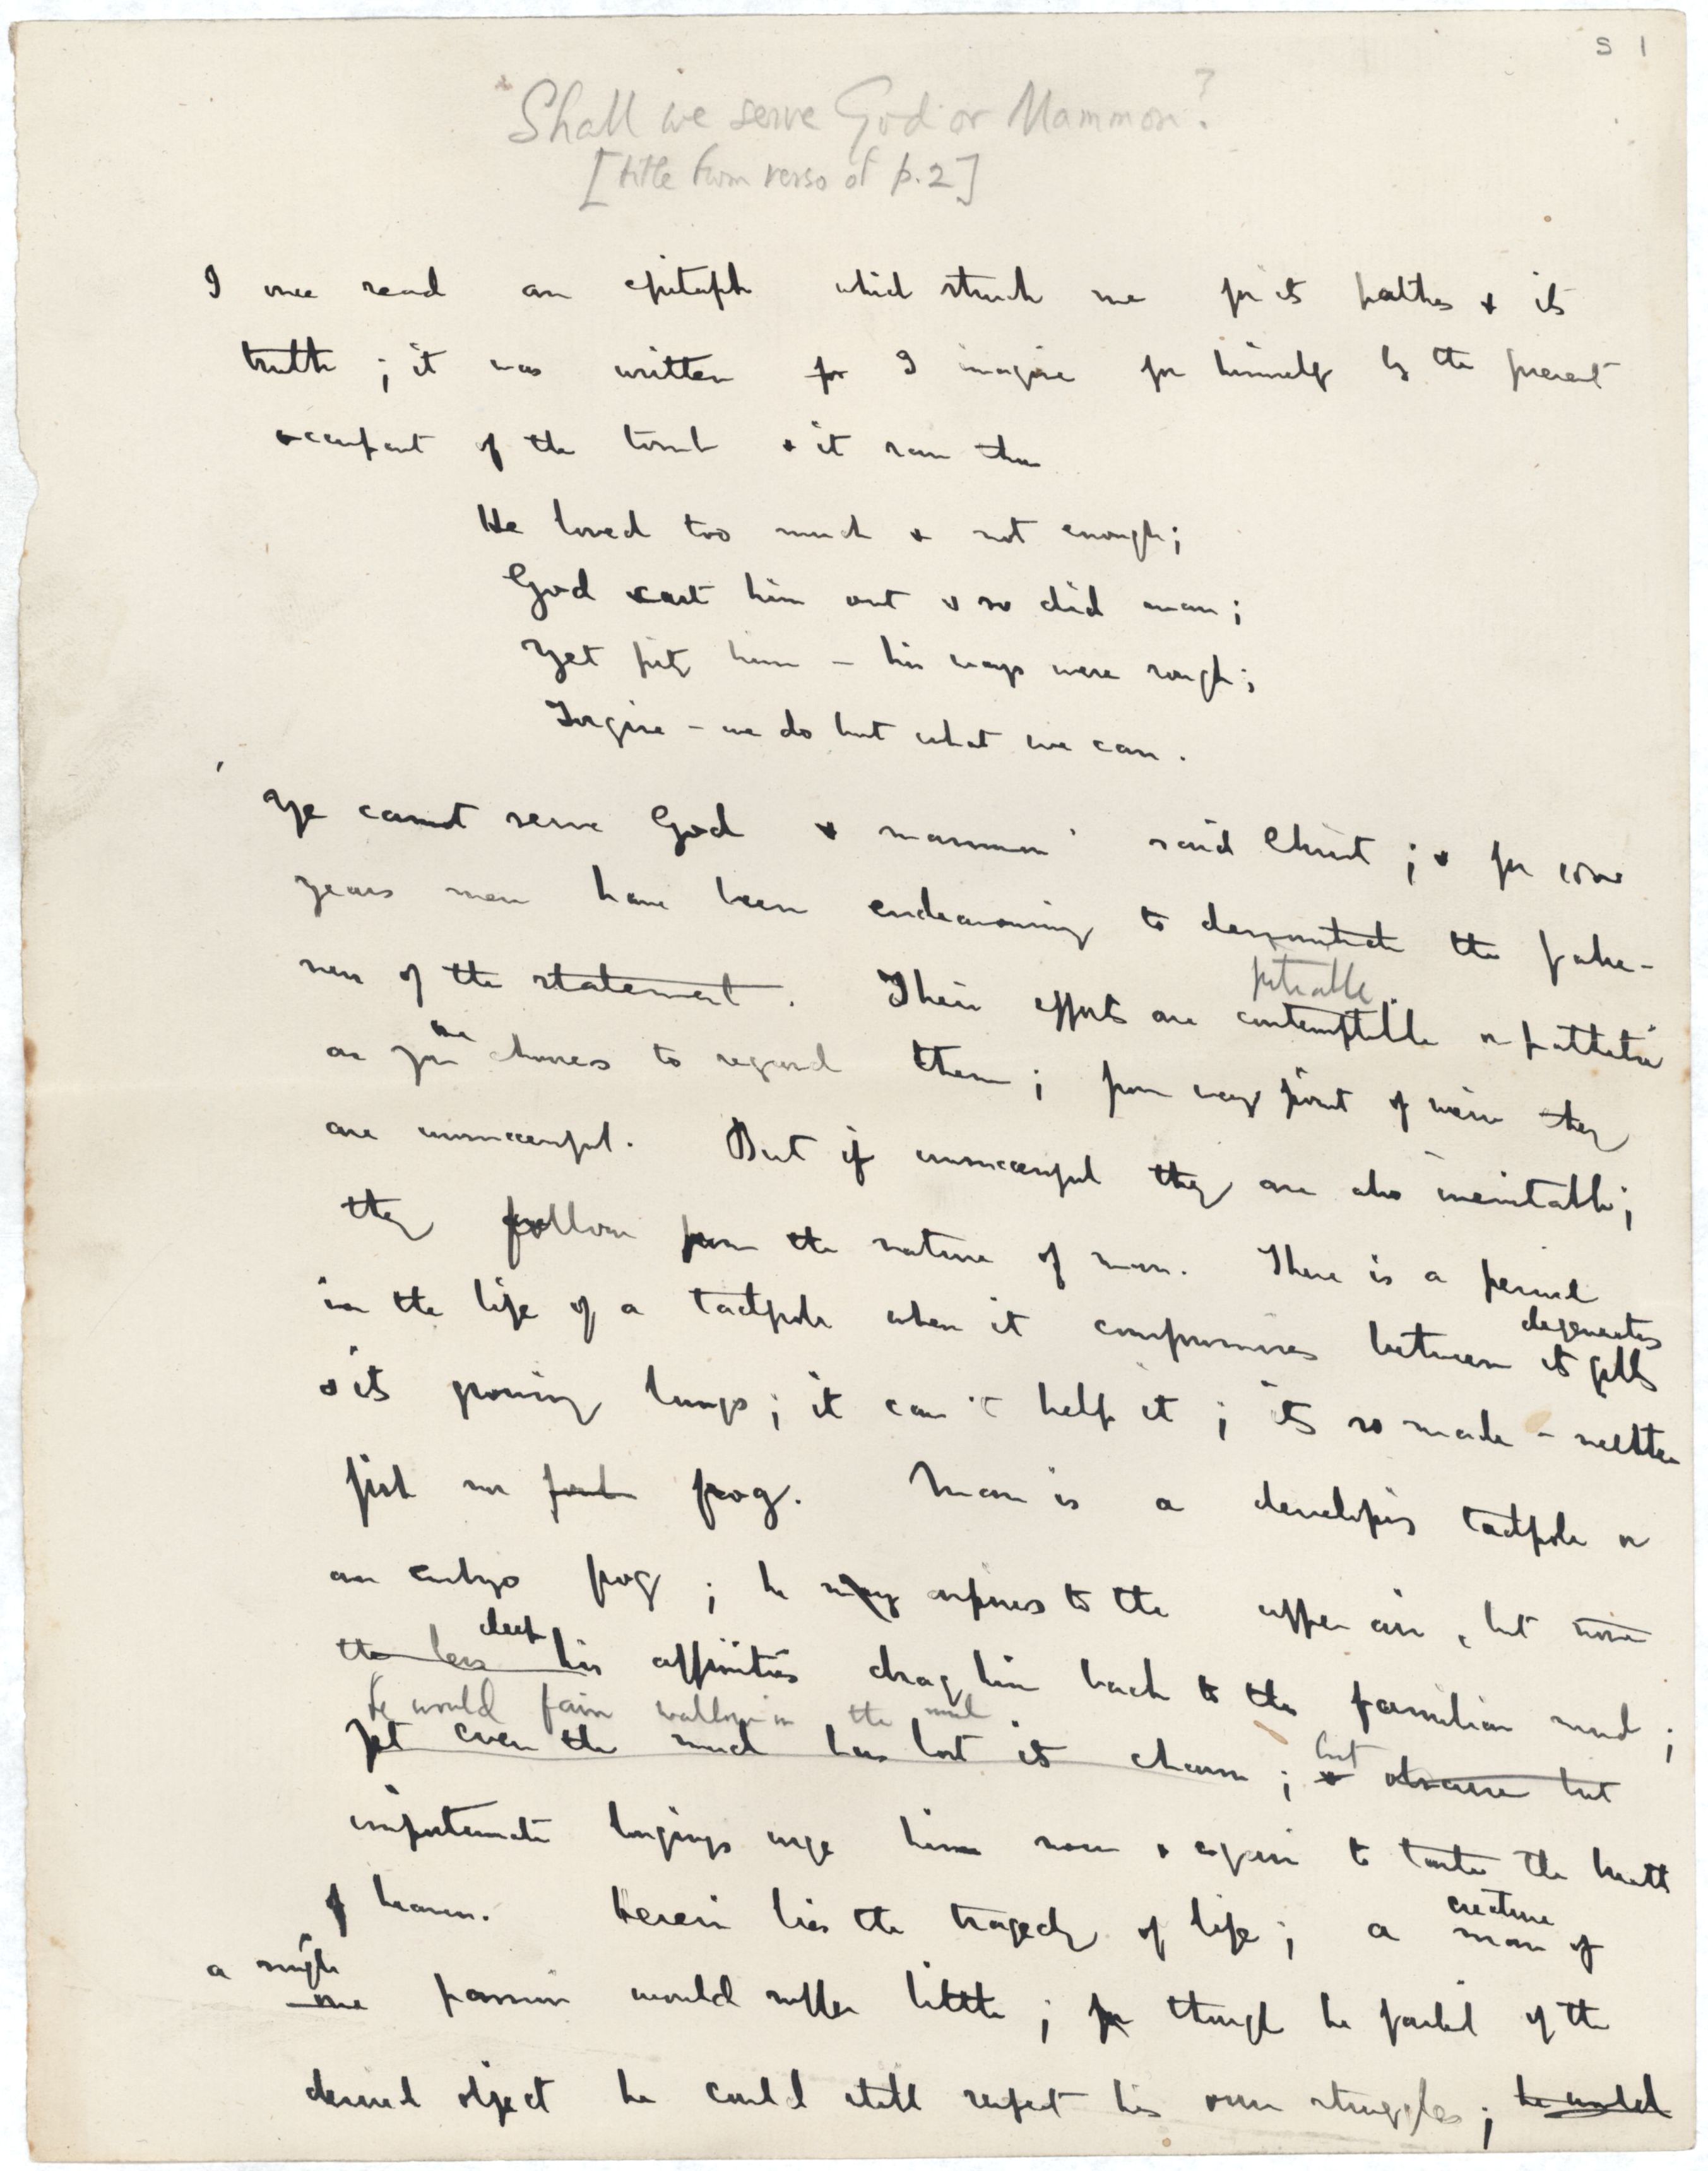 S 1
Shall we serve God or Mammon?
[title from verso of p.2]
I once read an epitaph which struck me for its pathos & its
truth ; it was written for I imagine for himself by the present
occupant of the tomb & it ran thus
He loved too much & not enough;
God cast him out & so did man;
Yet pity him – his ways were rough;
Forgive – we do but what we can.
'Ye cannot serve God & mammon' said Christ ; & for
years men have been endeavouring to demonstrate the false-
ness of the statement. Their efforts are contemptible or pathetic
pitiable
as you chooses to regard them ; from any point of view they
one
are unsuccessful. But if unsuccessful they are also inevitable;
they follow from the nature of man. There is a period
in the life of a tadpole when it compromises between its gills
degenerates
& its growing lungs ; it can't help it ; its so made – neither
fish nor frog. Man is a developing tadpole or
an embryo frog ; he may aspires to the upper air, but none
the less his affinities drag him back to the familiar mud ;
deep
he would fain wallow in the mud
yet even the mud has lost its charm ; & obscure but
but
importunate longings urge him now & again to taste the breath
of heaven. Herein lies the tragedy of life ; a man of
creature
a single
one passion would suffer little ; for though he failed of the
desired object he could still respect his own struggles ; he would